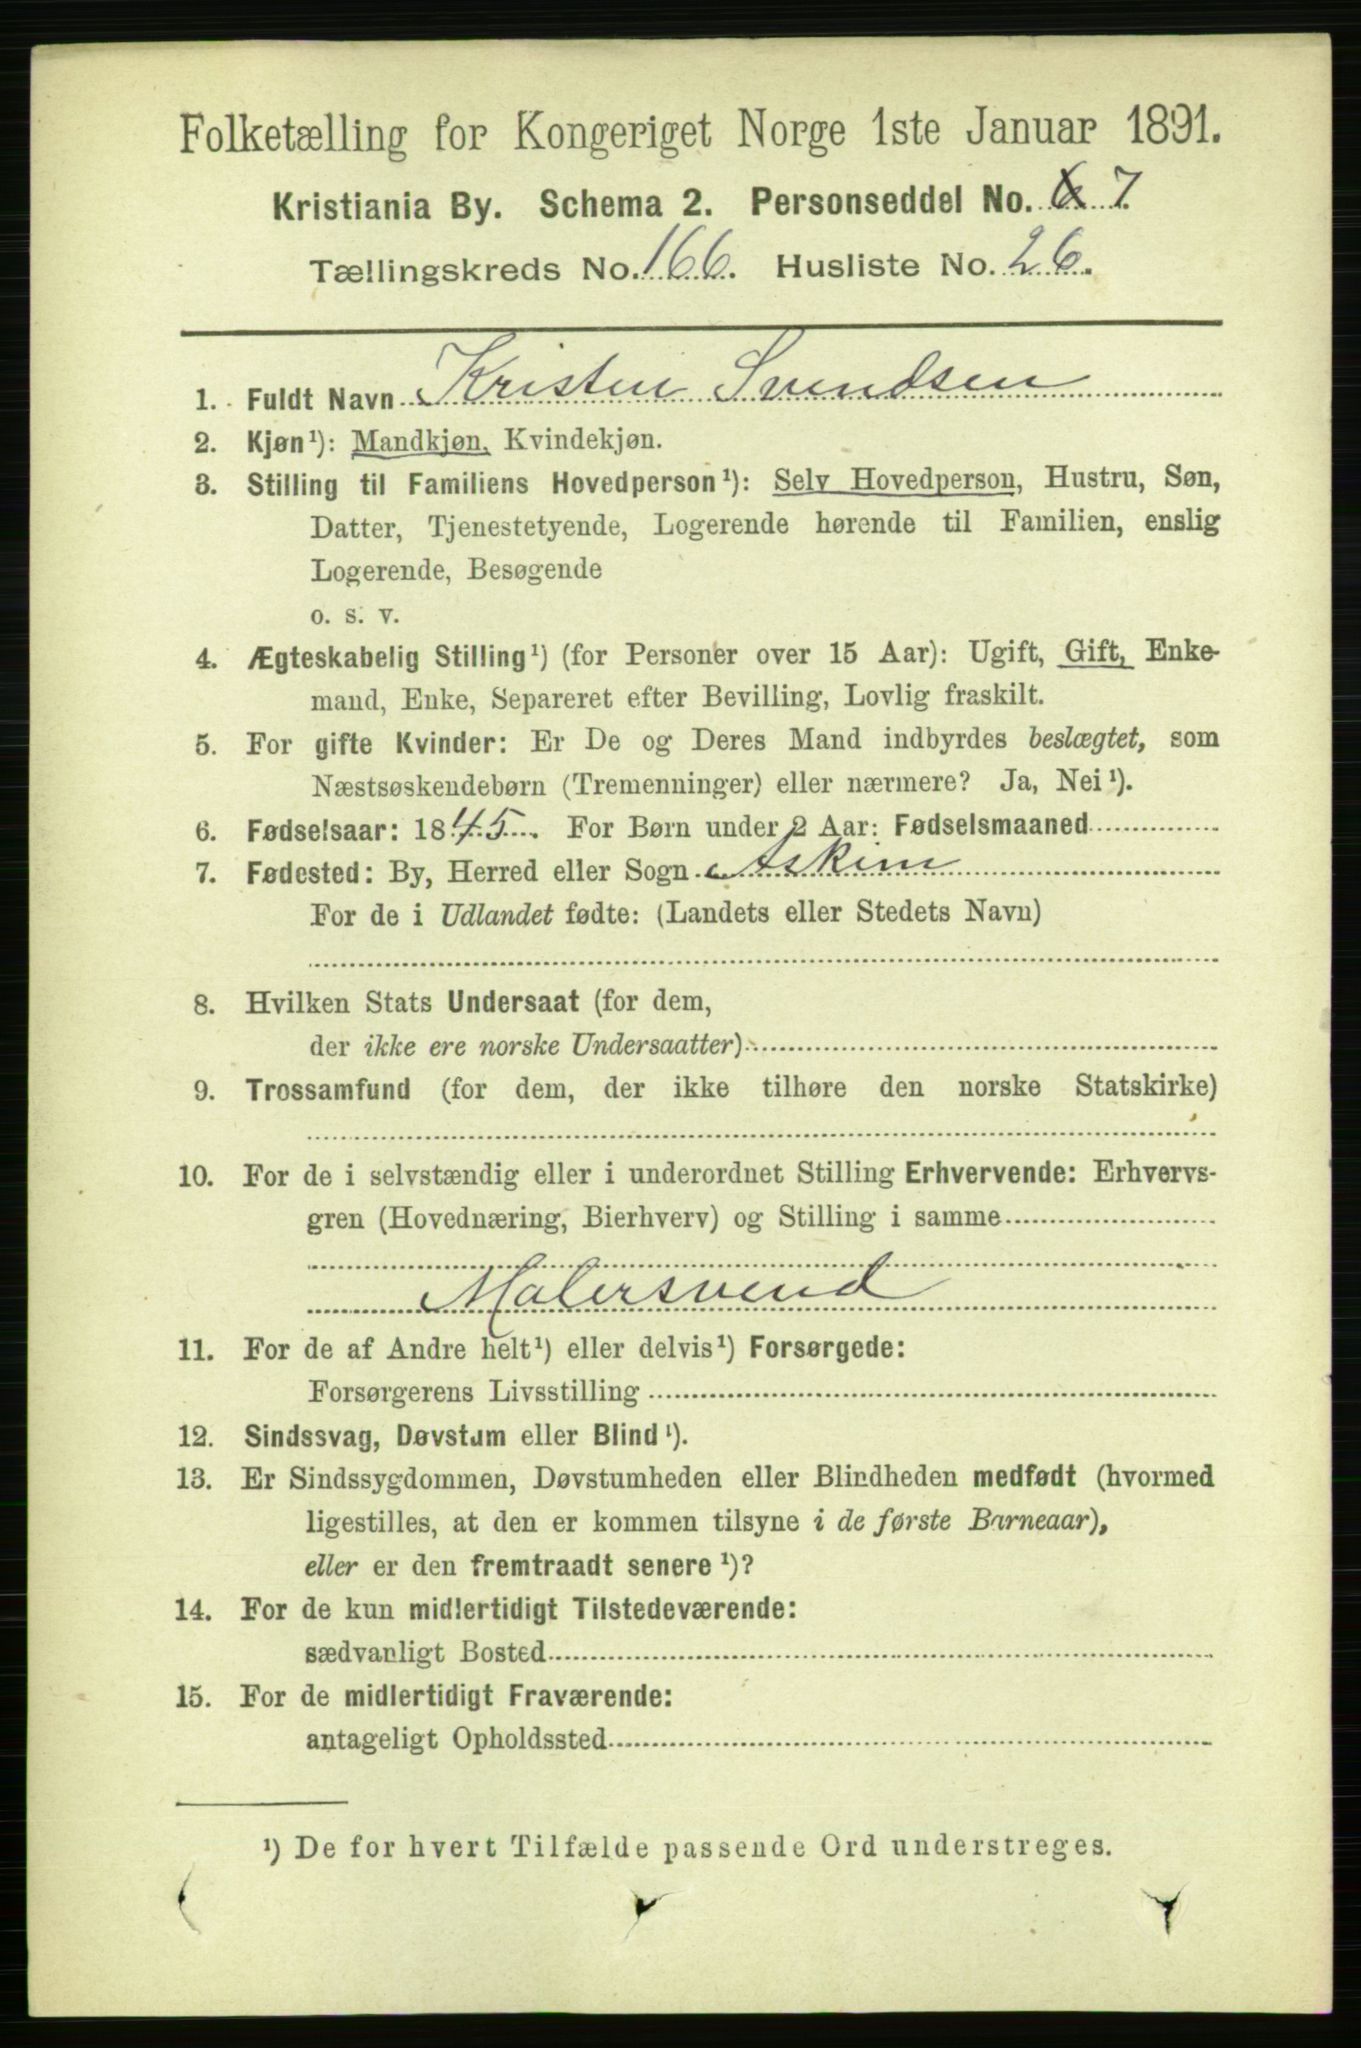 Folketælling for Kongeriget Norge 1ste Januar 1891.
Kristiania By. Schema 2. Personseddel No. 6 7.
Tællingskreds No. 166. Husliste No. 26.
1. Fuldt Navn Kristen Svendsen
2. Kjøn¹): Mandkjøn, Kvindekjøn.
3. Stilling til Familiens Hovedperson¹): Selv Hovedperson, Hustru, Søn,
Datter, Tjenestetyende, Logerende hørende til Familien, enslig
Logerende, Besøgende
o. s. v.
4. Ægteskabelig Stilling¹) (for Personer over 15 Aar): Ugift, Gift, Enke-
mand, Enke, Separeret efter Bevilling, Lovlig fraskilt.
5. For gifte Kvinder: Er De og Deres Mand indbyrdes beslægtet, som
Næstsøskendebørn (Tremenninger) eller nærmere? Ja, Nei¹).
6. Fødselsaar: 1845. For Børn under 2 Aar: Fødselsmaaned
7. Fødested: By, Herred eller Sogn Askim
For de i Udlandet fødte: (Landets eller Stedets Navn)
8. Hvilken Stats Undersaat (for dem,
der ikke ere norske Undersaatter)
9. Trossamfund (for dem, der ikke tilhøre den norske Statskirke)
10. For de i selvstændig eller i underordnet Stilling Erhvervende: Erhvervs-
gren (Hovednæring, Bierhverv) og Stilling i samme
Malersvend
11. For de af Andre helt¹) eller delvis¹) Forsørgede:
Forsørgerens Livsstilling
12. Sindssvag, Døvstum eller Blind¹).
13. Er Sindssygdommen, Døvstumheden eller Blindheden medfødt (hvormed
ligestilles, at den er kommen tilsyne i de første Barneaar),
eller er den fremtraadt senere¹)?
14. For de kun midlertidigt Tilstedeværende:
sædvanligt Bosted
15. For de midlertidigt Fraværende:
antageligt Opholdssted
¹) De for hvert Tilfælde passende Ord understreges.